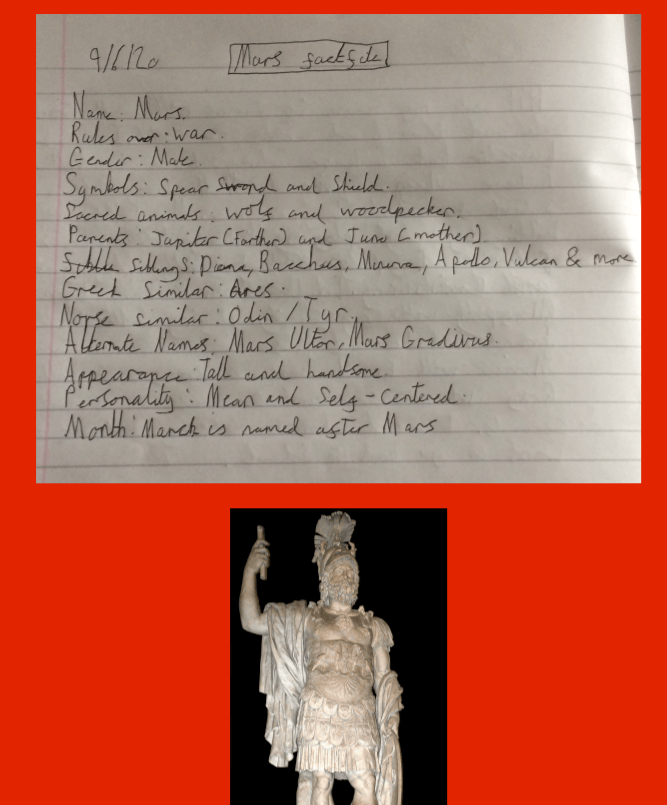 9/6/20 Mars factfile
Name: Mars.
Rules over: war.
Gender: Male.
Symbols: Spear Sword and Shield.
Sacred animals: wolf and woodpecker.
Parents: Jupiter (Farther) and Juno (mother)
Siblings: Diana, Bacchus, Minerva, Apollo, Vulcan & more
Greek Similar: Ares.
Norse similar: Odin / Tyr.
Alternate Names: Mars Ultor, Mars Gradivus.
Appearance: Tall and handsome.
Personality: Mean and Self-Centered.
Month: March is named after Mars